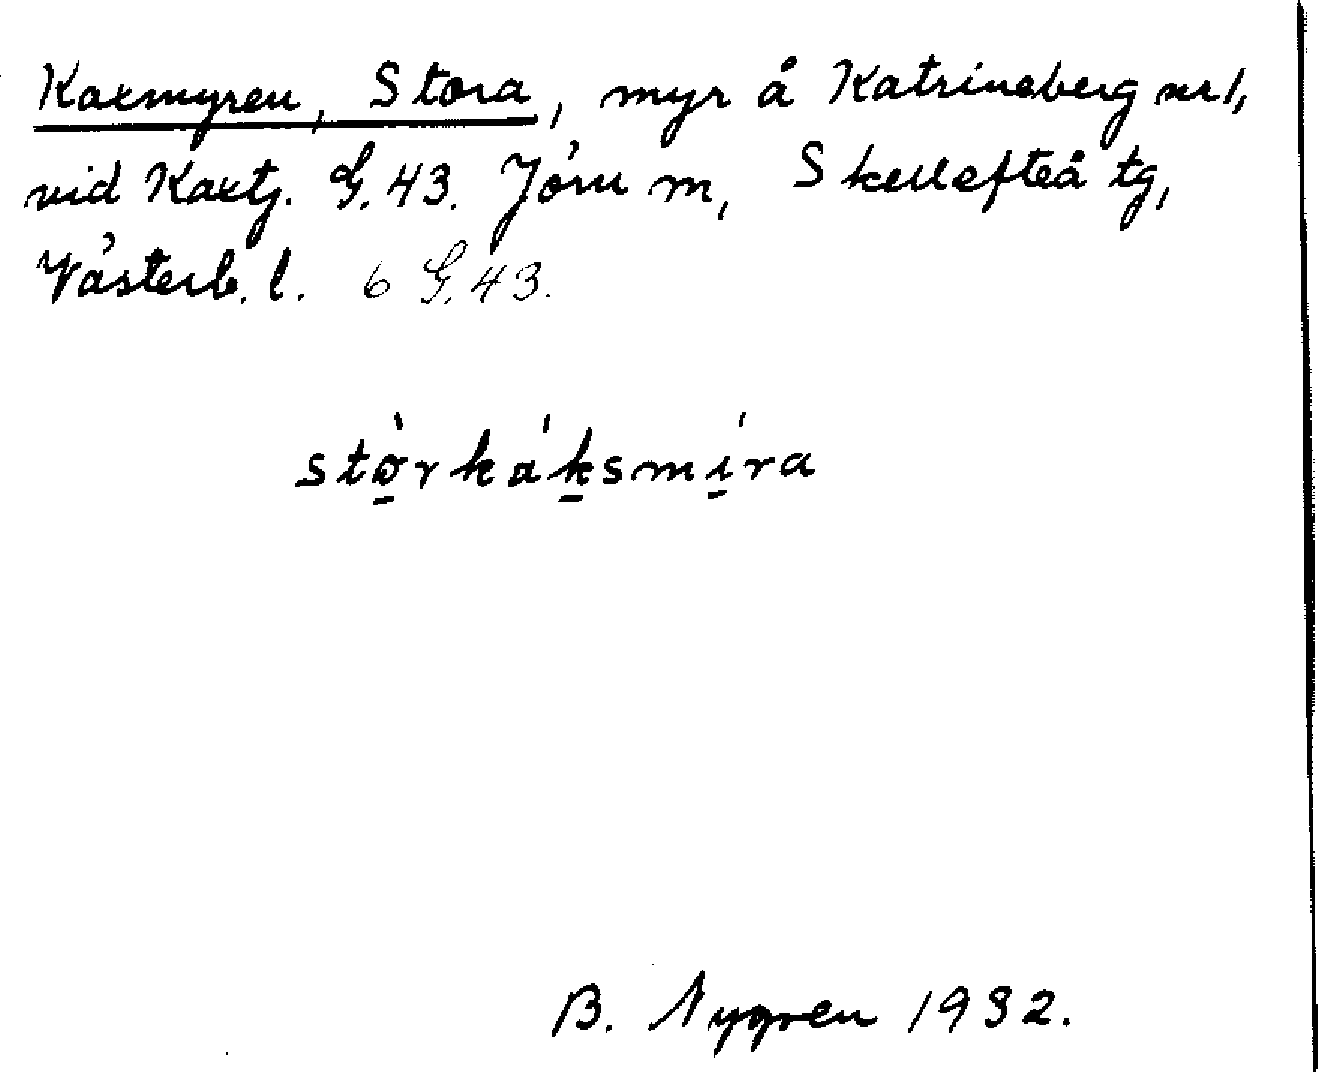 Kaxmyren, Stora, myr å Katrineberg nr 1,
vid Kaxtj. G. 43. Jörn m, Skellefteå tg,
Västerb. l. 6 G. 43.
stǫ̀rkáḵsmí̱ra
B. Nygren 1932.